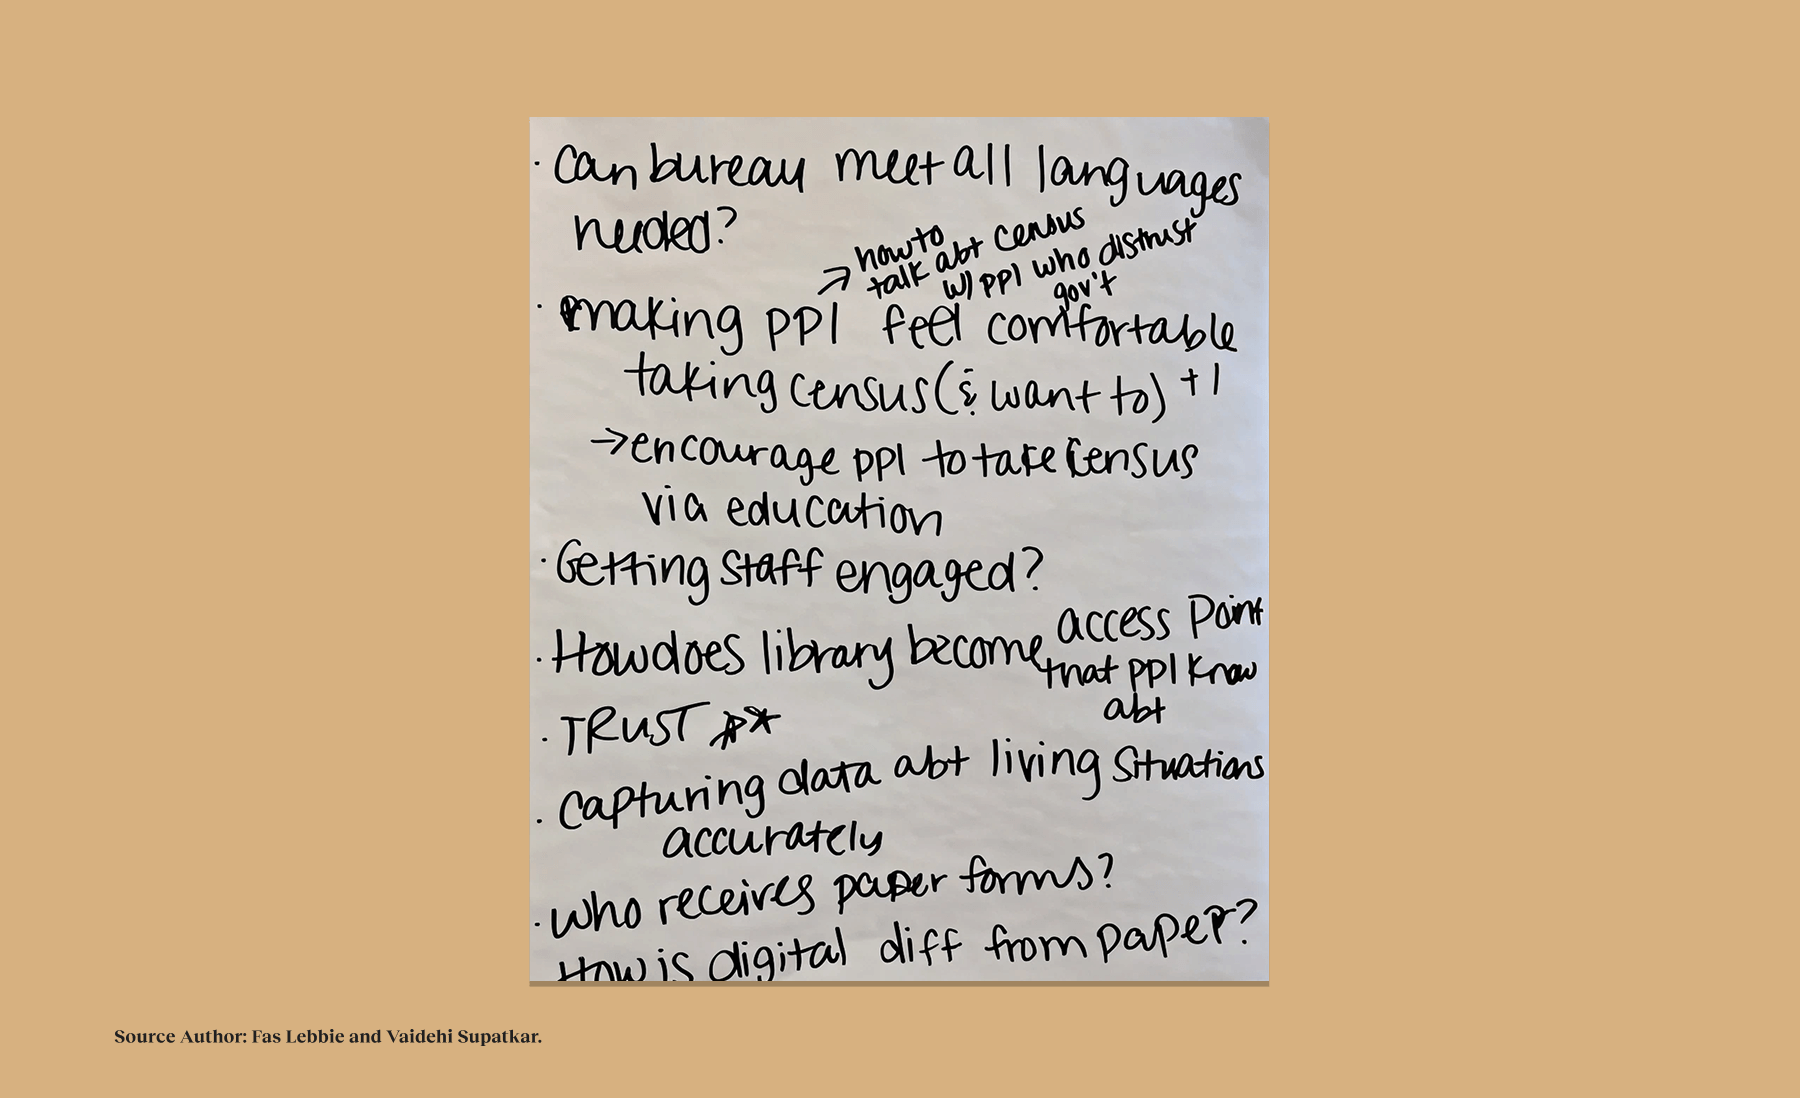 · Can bureau meet all languages
needed?
→ how to
talk abt census
w/ ppl who distrust
gov't
· making ppl feel comfortable
taking census (& want to) +1
→ encourage ppl to take Census
via education
· Getting staff engaged?
· How does library become access point
that ppl know
abt
· TRUST **
· capturing data abt living situations
accurately
· who receives paper forms?
How is digital diff from paper?
Source Author: Fas Lebbie and Vaidehi Supatkar.